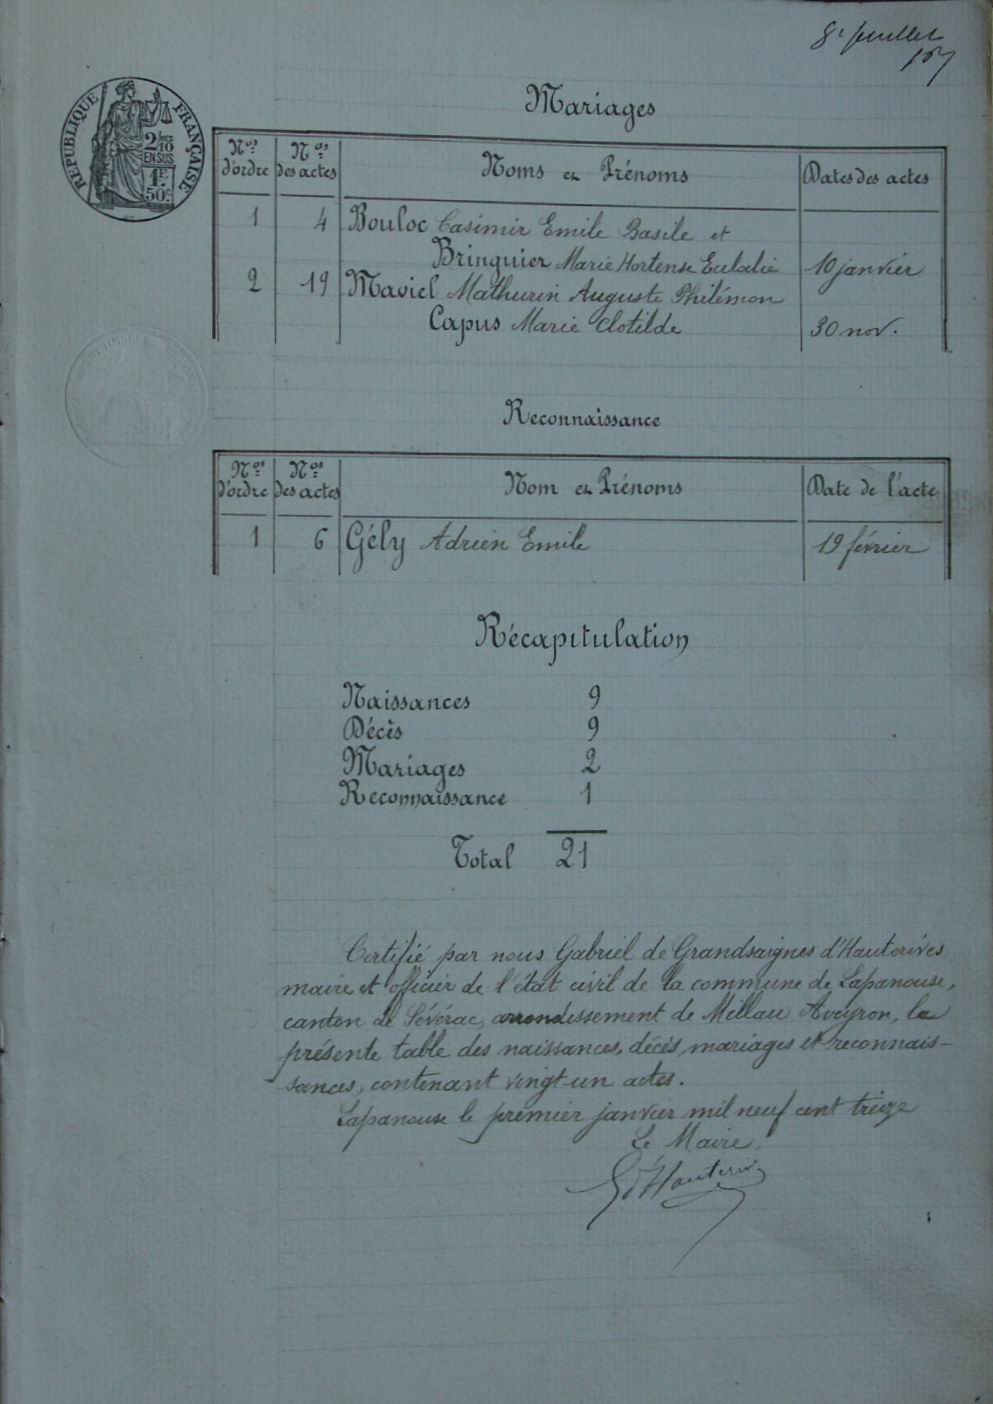 8e feuillet
RÉPUBLIQUE FRANÇAISE
2/10
EN SUS
1F
50c
Mariages
Nos d'ordre Nos des actes Noms et Prénoms Dates des actes
1 4 Bouloc Casimir Emile Basile et
Bringuier Marie Hortense Eulalie 10 janvier
2 19 Maviel Mathurin Auguste Philémon
Capus Marie Clotilde 30 nov.
Reconnaissance
Nos d'ordre Nos des actes Nom et Prénoms Date de l'acte
1 6 Gély Adrien Emile 19 février
Récapitulation
Naissances 9
Décès 9
Mariages 2
Reconnaissance 1
Total 21
Certifié par nous Gabriel de Grandsaignes d'Hauterives
maire et officier de l'état civil de la commune de Lapanouse,
canton de Sévérac, arrondissement de Millau Aveyron, la
présente table des naissances, décès, mariages et reconnais-
sances, contenant vingt-un actes.
Lapanouse le premier janvier mil neuf cent treize
Le Maire,
G d'Hauterives